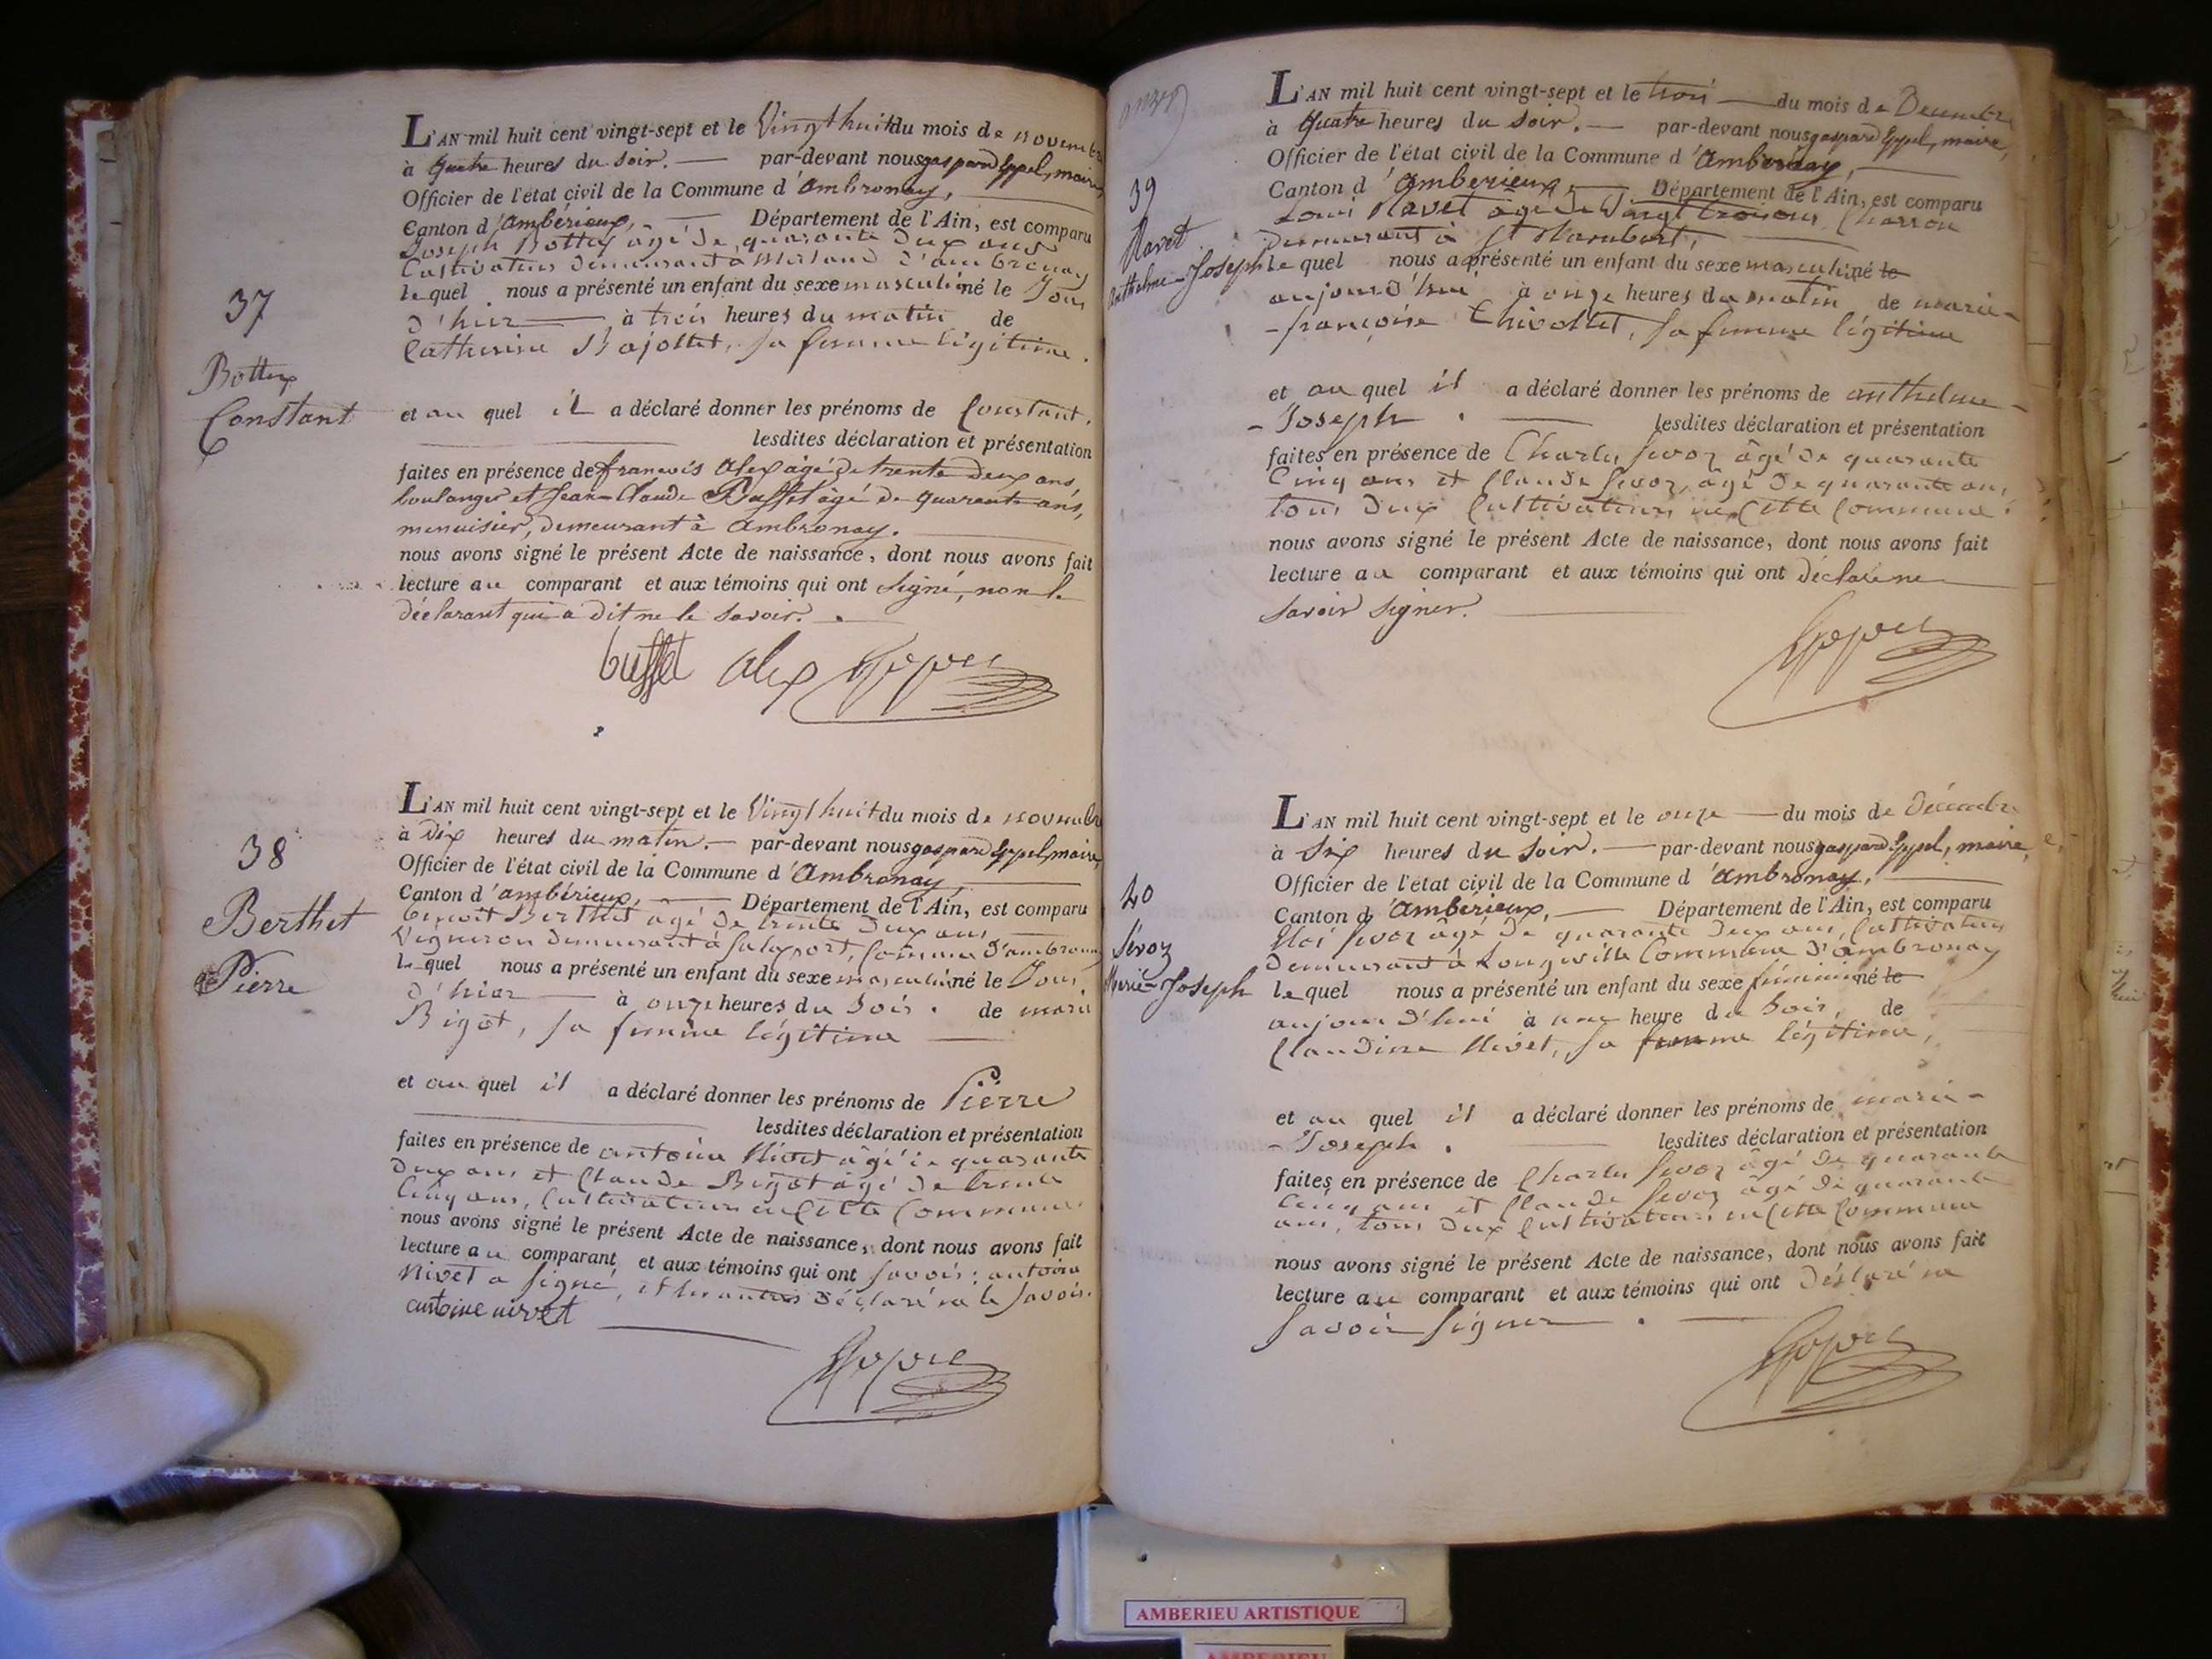 L'AN mil huit cent vingt-sept et le Vingt huit du mois de novembre
à quatre heures du soir. — par-devant nous gaspard Eppel, maire,
Officier de l'état civil de la Commune d'ambronay,
Canton d'ambérieux, — Département de l'Ain, est comparu
Joseph Bottex âgé de quarante deux ans
Cultivateur demeurant à Merland d'ambronay
le quel nous a présenté un enfant du sexe masculin né le Jour
d'hier — à trois heures du matin de
Catherine Bajollet, sa femme légitime.
37
Bottex
Constant
et au quel il a déclaré donner les prénoms de Constant.
lesdites déclaration et présentation
faites en présence de francois Alex âgé de trente deux ans,
boulanger et Jean-Claude Buffet âgé de quarante ans,
menuisier, demeurant à Ambronay.
nous avons signé le présent Acte de naissance, dont nous avons fait
lecture au comparant et aux témoins qui ont signé, non le
déclarant qui a dit ne le savoir.
buffet alex Eppel
L'AN mil huit cent vingt-sept et le Vingt huit du mois de novembre
à dix heures du matin. — par-devant nous gaspard Eppel, maire,
Officier de l'état civil de la Commune d'Ambronay,
Canton d'ambérieux, — Département de l'Ain, est comparu
benoit Berthet âgé de trente deux ans
Vigneron demeurant à Commune d'ambronay
le quel nous a présenté un enfant du sexe masculin né le Jour
d'hier — à onze heures du Soir. de marie
Bigot, sa femme légitime
38
Berthet
Pierre
et au quel il a déclaré donner les prénoms de Pierre
lesdites déclaration et présentation
faites en présence de antoine Nivet âgé de quarante
deux ans et Claude Bigot âgé de trente
Cinq ans, Cultivateurs en Cette Commune.
nous avons signé le présent Acte de naissance, dont nous avons fait
lecture au comparant et aux témoins qui ont savoir: antoine
Nivet a signé, et les autres déclaré ne le savoir.
antoine nivet
Eppel
L'AN mil huit cent vingt-sept et le trois — du mois de Decembre
à Quatre heures du soir. — par-devant nous gaspard Eppel, maire,
Officier de l'état civil de la Commune d'Ambronay,
Canton d'Amberieux, — Département de l'Ain, est comparu
Louis Ravet âgé de Vingt trois ans, Charron
demeurant à St Rambert,
le quel nous a présenté un enfant du sexe masculin né le
aujourd'hui à onze heures du matin de marie-
-françoise Chivollet, sa femme légitime
39
Ravet
anthelme-Joseph
et au quel il a déclaré donner les prénoms de anthelme-
-Joseph. lesdites déclaration et présentation
faites en présence de Charles Sevoz âgé de quarante
Cinq ans et Claude Sevoz, âgé de quarante ans,
tous deux Cultivateurs en Cette Commune.
nous avons signé le présent Acte de naissance, dont nous avons fait
lecture au comparant et aux témoins qui ont déclaré ne
savoir signer.
Eppel
L'AN mil huit cent vingt-sept et le onze — du mois de Décembre
à Six heures du soir. — par-devant nous gaspard Eppel, maire,
Officier de l'état civil de la Commune d'ambronay,
Canton d'Amberieux, — Département de l'Ain, est comparu
Eloi Sevoz âgé de quarante deux ans, Cultivateur
demeurant à Longeville Commune d'ambronay
le quel nous a présenté un enfant du sexe féminin né le
aujourd'hui à une heure du Soir, de
Claudine Nivet, sa femme légitime,
40
Sévoz
Marie-Joseph
et au quel il a déclaré donner les prénoms de marie-
-Joseph. lesdites déclaration et présentation
faites en présence de Charles Sevoz âgé de quarante
Cinq ans et Claude Sevoz âgé de quarante
ans, tous deux Cultivateurs en Cette Commune
nous avons signé le présent Acte de naissance, dont nous avons fait
lecture au comparant et aux témoins qui ont déclaré ne
Savoir signer.
Eppel
AMBERIEU ARTISTIQUE
AMBERIEU